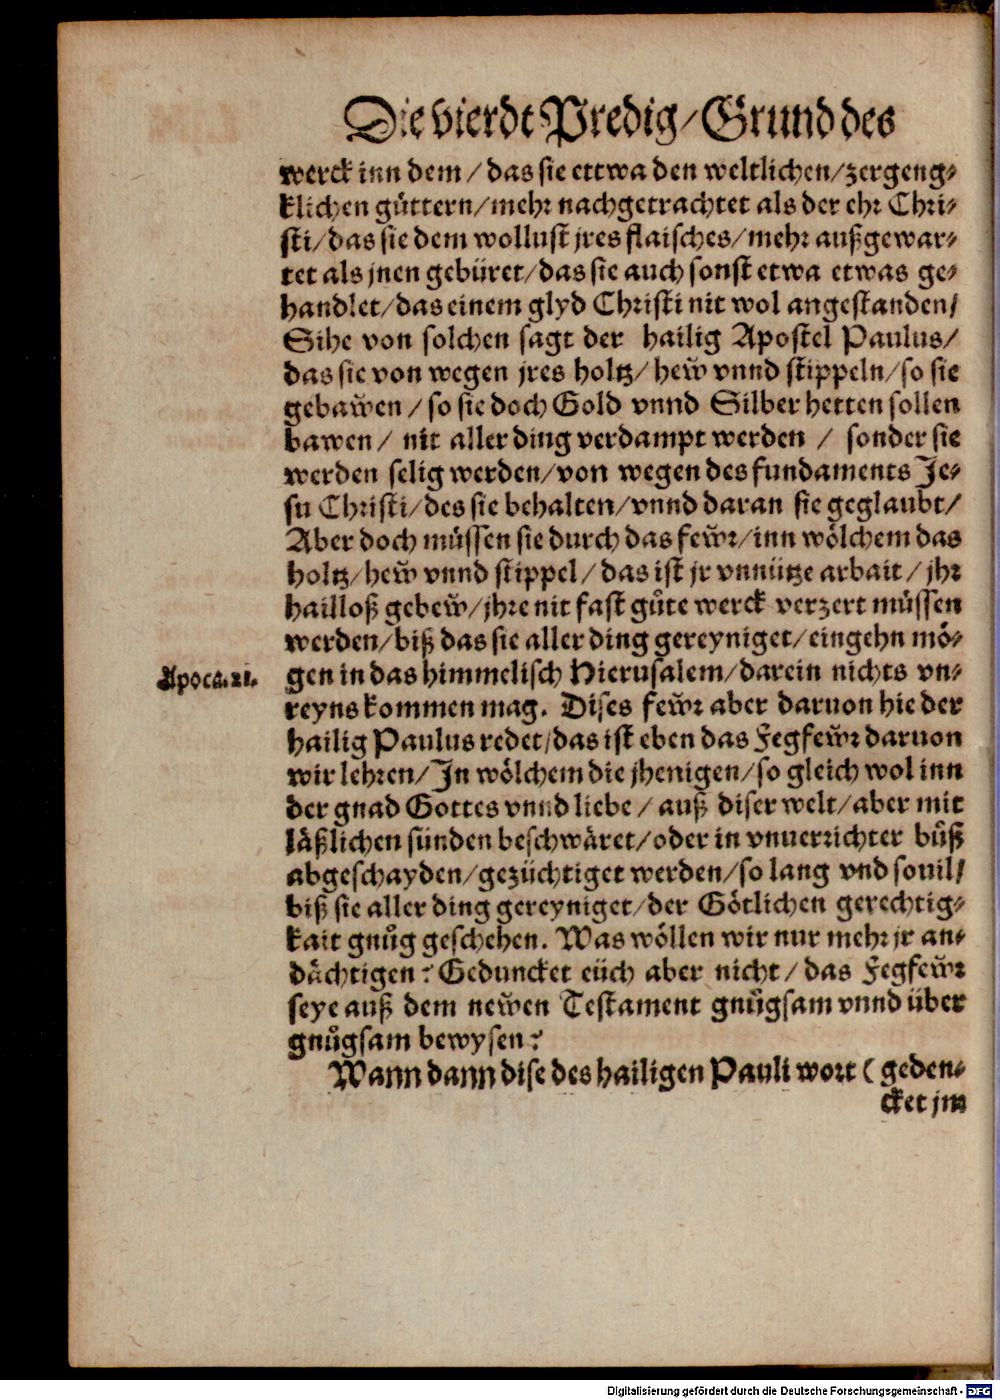 Die vierdt Predig/Grund des
werck inn dem/das sie ettwa den weltlichen/zergeng-
klichen güttern/mehr nachgetrachtet als der ehr Chri-
sti/das sie dem wollust jres flaisches/mehr außgewar-
tet als jnen gebüret/das sie auch sonst etwa etwas ge-
handlet/das einem glyd Christi nit wol angestanden/
Sihe von solchen sagt der hailig Apostel Paulus/
das sie von wegen jres holtz/hew̃ vnnd stippeln/so sie
gebaw̃en/so sie doch Gold vnnd Silber hetten sollen
bawen/ nit aller ding verdampt werden / sonder sie
werden selig werden/von wegen des fundaments Je-
su Christi/des sie behalten/vnnd daran sie geglaubt/
Aber doch müssen sie durch das few̃r/inn wölchem das
holtz/hew̃ vnnd stippel/das ist jr vnnütze arbait/jhr
hailloß gebew̃/jhre nit fast gůte werck verzert müssen
werden/biß das sie aller ding gereyniget/eingehn mö-
Apoca.21.
gen in das himmelisch Hierusalem/darein nichts vn-
reyns kommen mag. Dises few̃r aber daruon hie der
hailig Paulus redet/das ist eben das Fegfew̃r daruon
wir lehren/In wölchem die jhenigen/so gleich wol inn
der gnad Gottes vnnd liebe/auß diser welt/aber mit
läßlichen sünden beschwäret/oder in vnuerrichter bůß
abgeschayden/gezüchtiget werden/so lang vnd souil/
biß sie aller ding gereyniget/der Götlichen gerechtig-
kait gnůg geschehen. Was wöllen wir nur mehr jr an-
dächtigen? Geduncket eüch aber nicht/das Fegfew̃r
seye auß dem new̃en Testament gnůgsam vnnd über
gnůgsam bewysen?
Wann dann dise des hailigen Pauli wort (geden-
cket jm
Digitalisierung gefördert durch die Deutsche Forschungsgemeinschaft - DFG